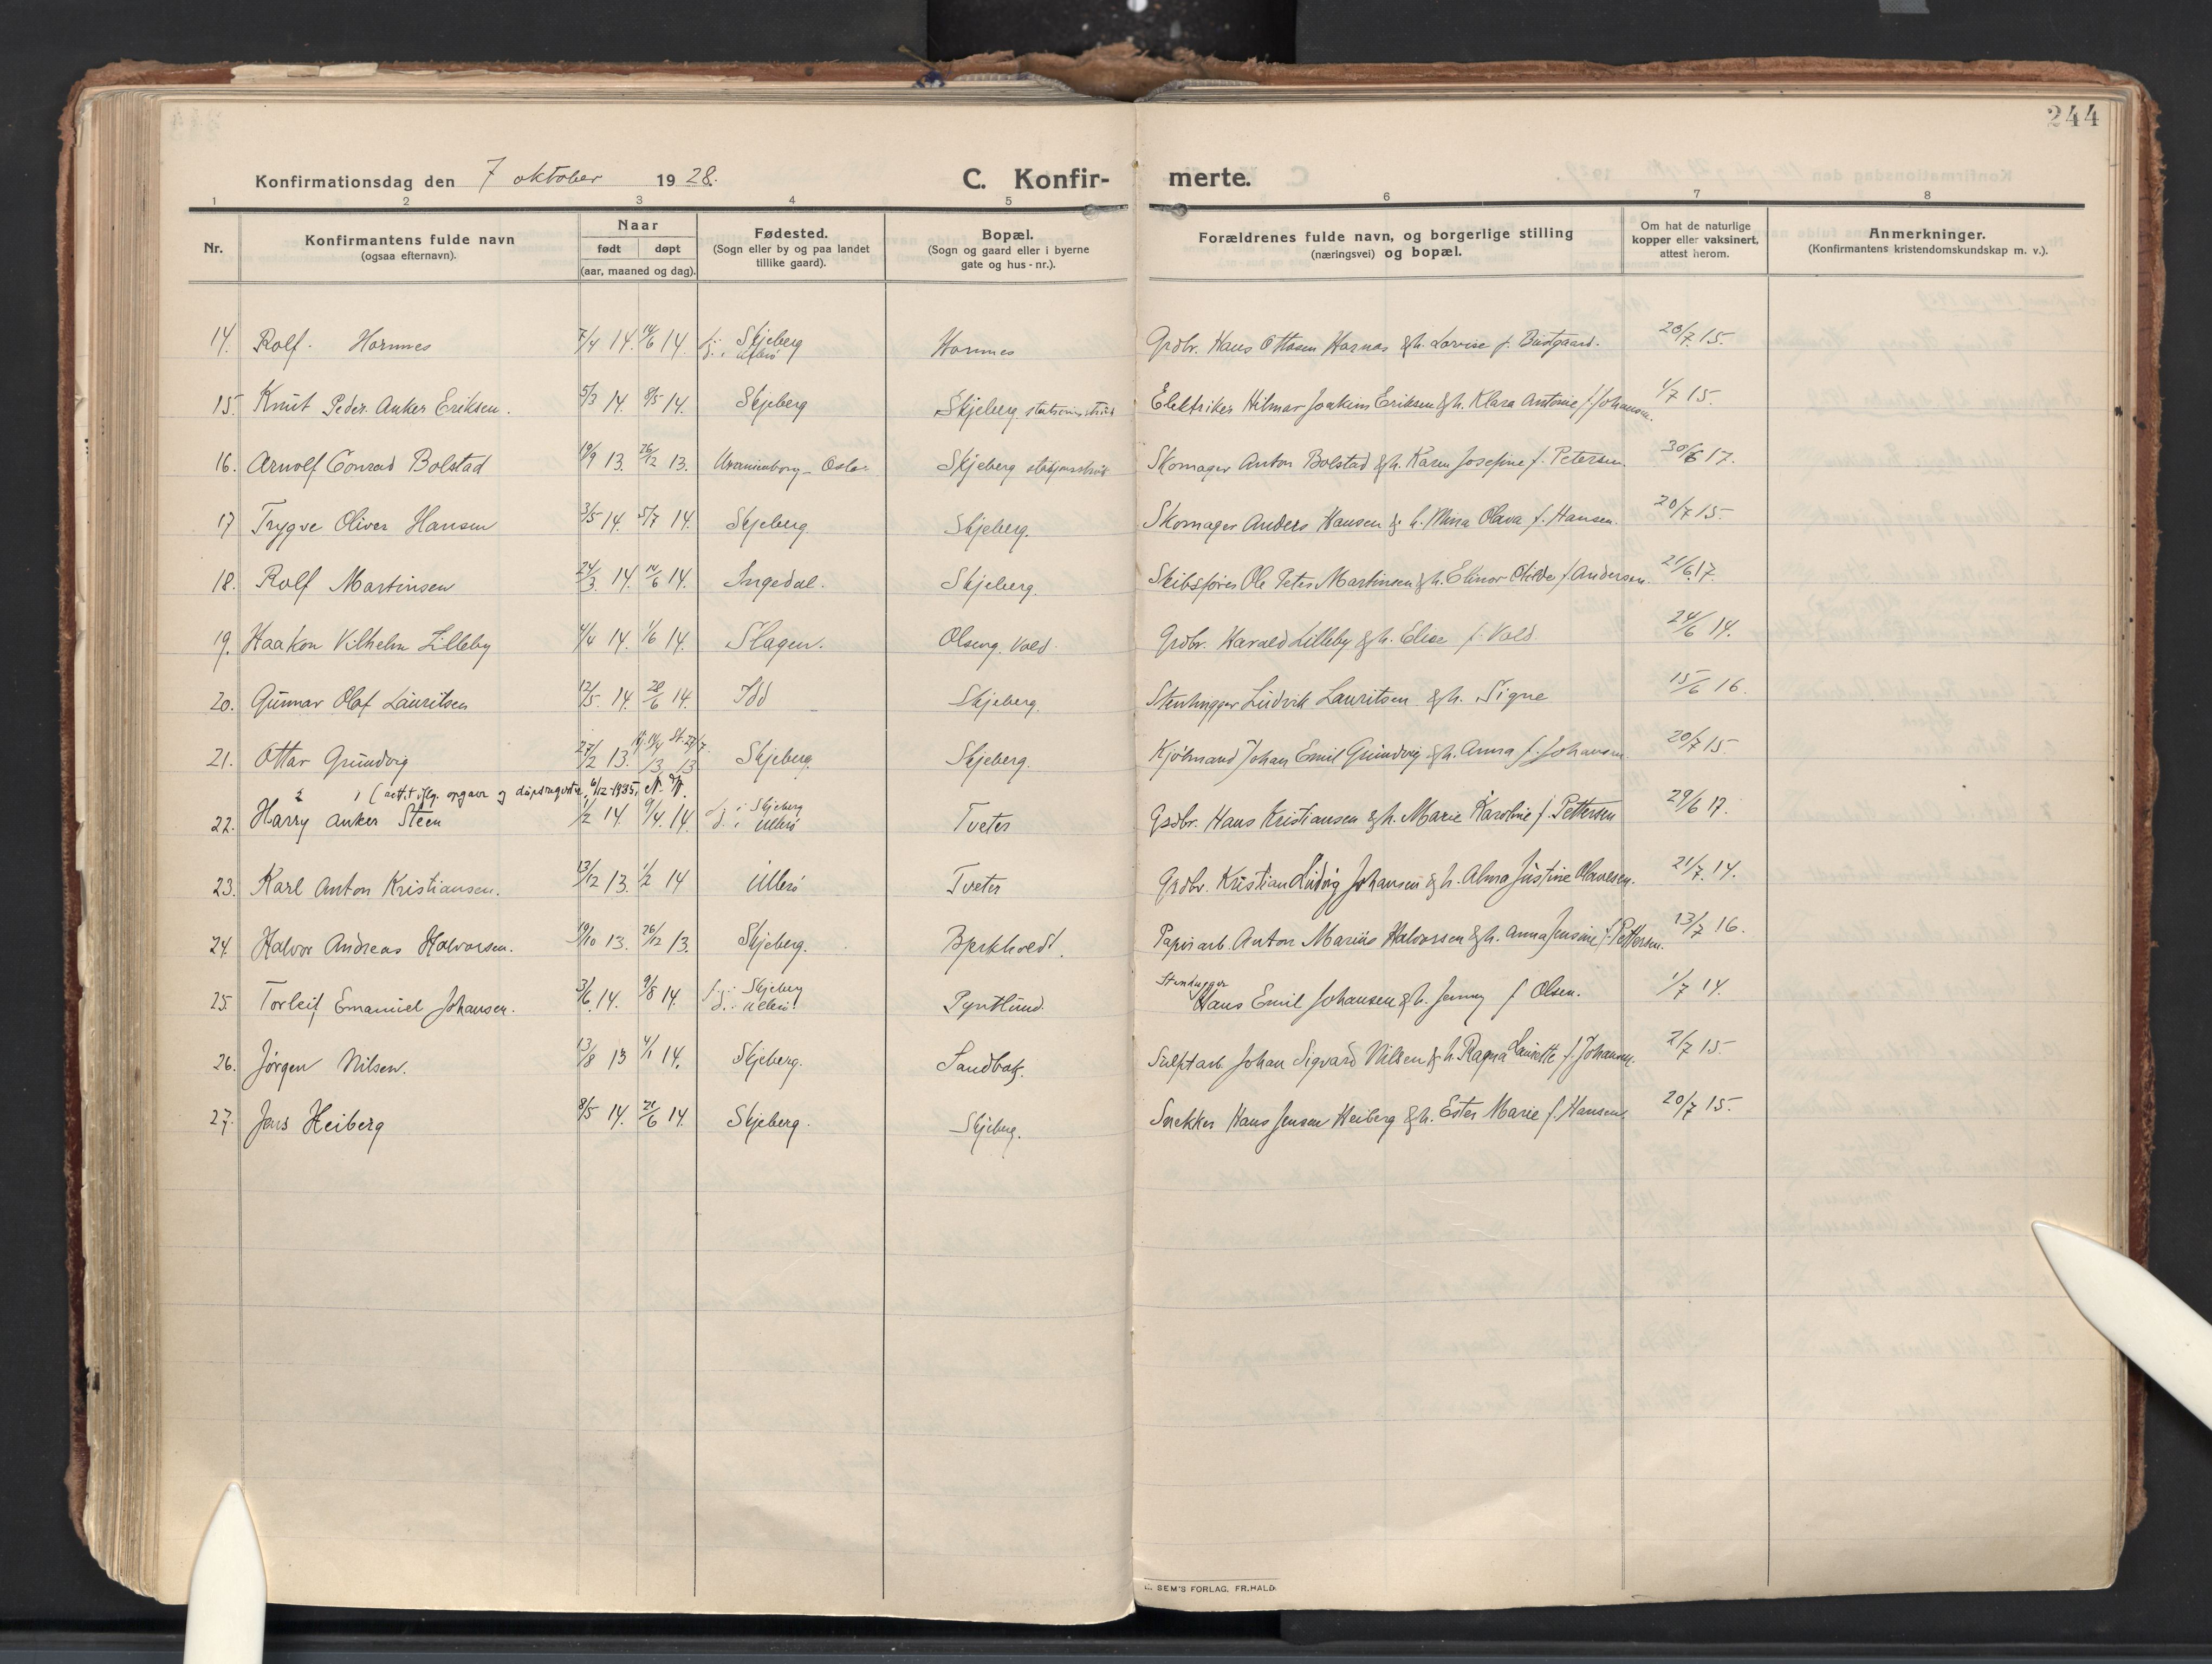 244
Konfirmationsdag den 7 oktober 1928. C. Konfir- merte.
1 2 3 4 5 6 7 8
Nr. Konfirmantens fulde navn (ogsaa efternavn). Naar født døpt (aar, maaned og dag). Fødested. (Sogn eller by og paa landet tillike gaard). Bopæl. (Sogn og gaard eller i byerne gate og hus-nr.). Forældrenes fulde navn, og borgerlige stilling (næringsvei) og bopæl. Om hat de naturlige kopper eller vaksinert, attest herom. Anmerkninger. (Konfirmantens kristendomskundskap m. v.).
14. Rolf. Hornnes 7/4 14. 14/6 14. f. Skjeberg d. i Ullerø Hornnes Grdbr. Hans Ottosen Hornæs & h. Lovise f. Bustgaard. 20/7 15.
15. Knut Peder Anker Eriksen. 5/3 14. 8/5 14. Skjeberg Skjeberg Elektriker Hilmar Joakim Eriksen & h. Klara Antonie f. Johansen. 1/7 15.
16. Arnolf Conrad Bolstad 19/9 13. 26/12 13. Uranienborg - Oslo. Skjeberg Skomager Anton Bolstad & h. Karen Josefine f. Petersen. 30/6 17.
17 Trygve Oliver Hansen 3/5 14. 5/7 14. Skjeberg. Skjeberg. Skomager Anders Hansen & h. Mina Olava f. Hansen. 20/7 15.
18. Rolf Martinsen 24/3. 14. 14/6 14. Ingedal. Skjeberg. Skibsfører Ole Peter Martinsen & h. Elinor Otilde f. Andersen. 21/6 17.
19. Haakon Vilhelm Lilleby 4/4 14. 1/6 14. Slagen. Olserg. Vold. Grdbr. Harald Lilleby & h. Elise f. Vold 24/6 14.
20. Gunnar Olaf Lauritsen 12/5. 14. 28/6 14. Idd Skjeberg. Stenhugger Ludvik Lauritsen & h. Signe 15/6 16.
21. Ottar Grundvig 27/2 13. 13 Skjeberg. Skjeberg. Kjøbmand Johan Emil Grundvig & h. Anna f. Johansen. 20/7 15.
( rettet iflg. opgave og dåpsregister, 6/12-1935, N. N.
22. Harry Anker Steen 1/2 14. 9/4. 14. f. i Skjeberg d. i Ullerø Tveter Grdbr. Hans Kristiansen & h. Marie Karoline f. Pettersen 29/6 17.
23. Karl Anton Kristiansen. 13/12 13. 1/2 14 Ullerø Tveter Grdbr. Kristian Ludvig Johansen & h. Alma Justine Olavesen. 21/7. 14.
24. Halvor Andreas Halvorsen. 19/10 13. 26/12 13. Skjeberg. Bjerkholdt. Papirarb. Anton Marius Halvorsen & h. Anna Jensine f. Pettersen. 13/7 16.
25. Torleif Emanuel Johansen. 3/6. 14. 9/8 14. f. i Skjeberg d. i Ullerø! Pyntlund. Stenhugger Hans Emil Johansen & h. Jenny f. Olsen. 1/7 14.
26. Jørgen Nilsen. 13/8 13 4/1 14. Skjeberg. Sandbak. Sulfitarb. Johan Sigvard Nilsen & h. Ragna Laurette f. Johansen. 2/7 15.
27. Jens Heiberg 8/5 14. 21/6 14. Skjeberg. Skjeberg. Snekker Hans Jensen Heiberg & h. Ester Marie f. Hansen. 20/7 15.
SEM'S FORLAG. FR.HALD.